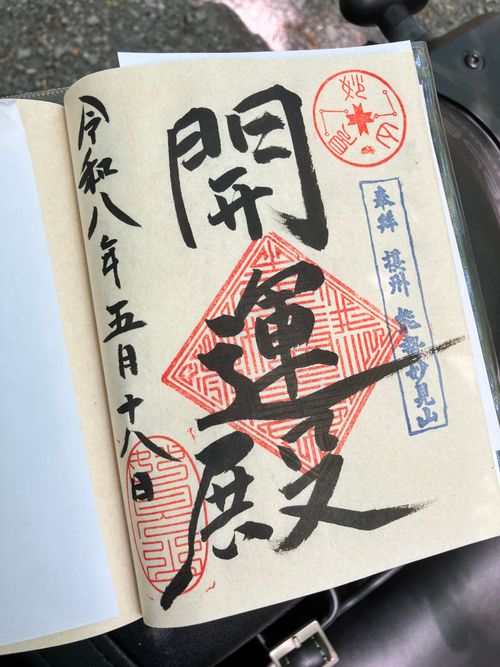 奉拝 摂州 能勢妙見山
開運殿
令和八年五月十八日